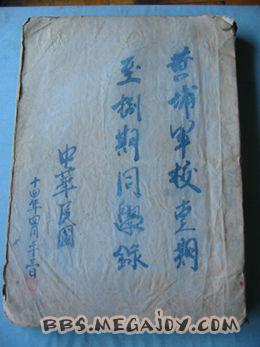 黃埔軍校壹期
至捌期同學錄
中華民國
十四年四月二十三日
BBS.MEGAJOY.COM